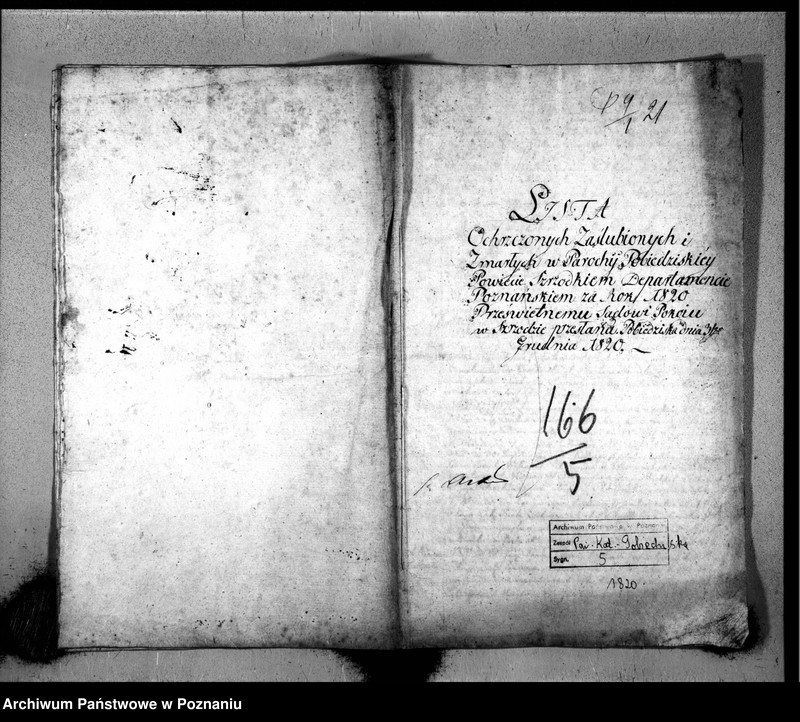 9/1 21
LISTA
Ochrzczonych Zaslubionych i
Zmarłych w Parochij Pobiedziskiey
Powiecie Szrzodkiem Departamencie
Poznańskiem za Rok 1820
Prześwietnemu Sądowi Pokoiu
w Szrodzie przesłana. Pobiedziska dnia
Grudnia 1820.
166
5
Archiwum Państwowe w Poznaniu
Zespół Par. Kat. Pobiedziska
Sygn. 5
1820.
Archiwum Państwowe w Poznaniu